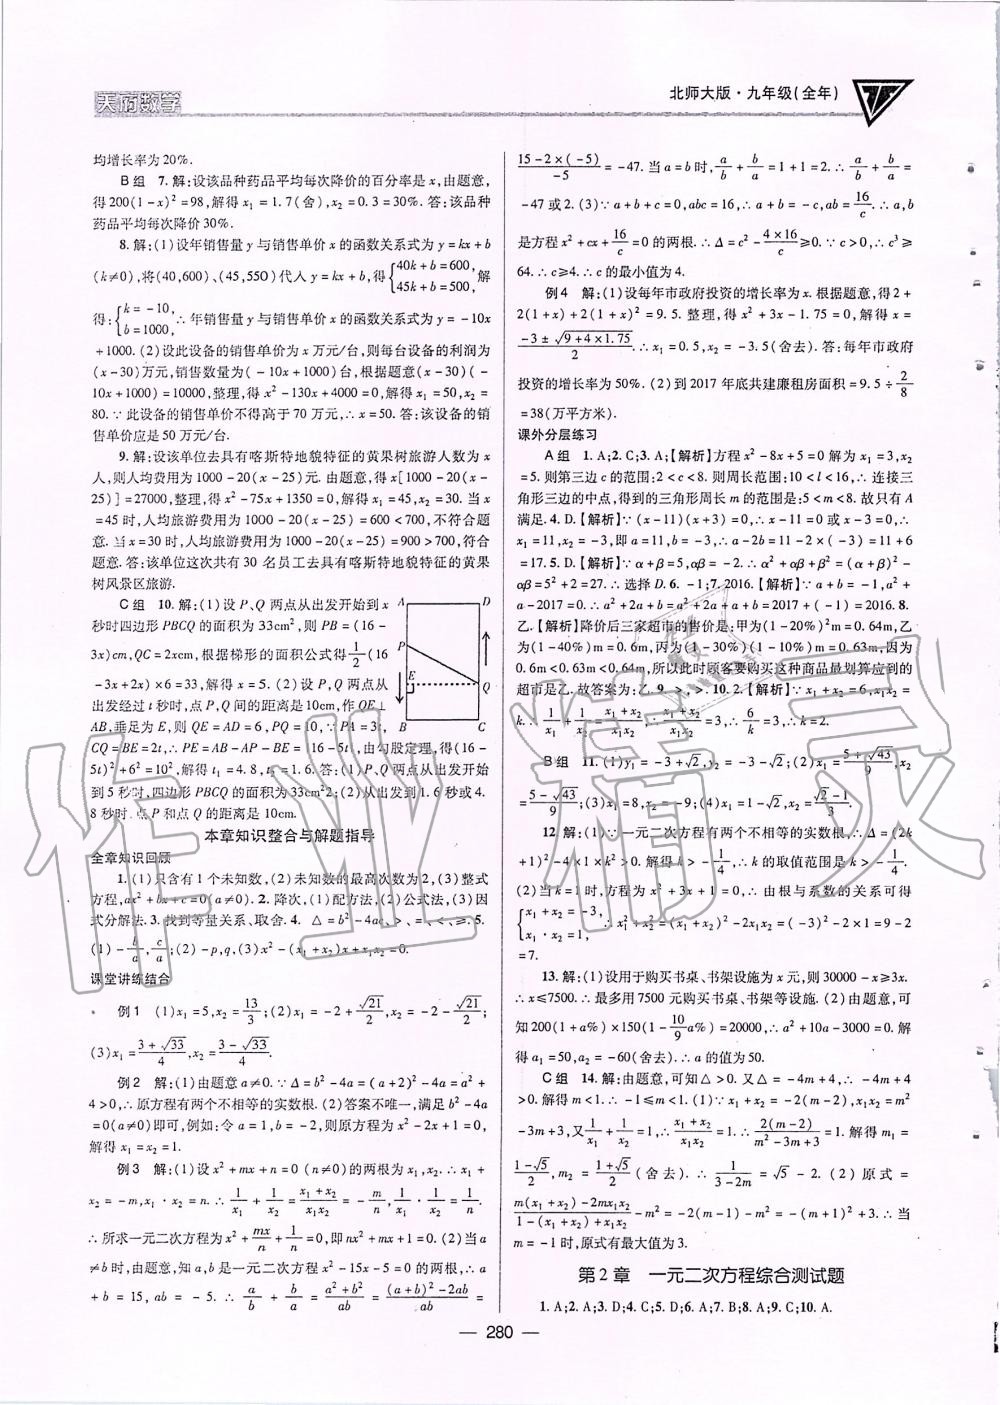 天府数学
北师大版·九年级(全年)
均增长率为20%.
B组 7.解:设该品种药品平均每次降价的百分率是x,由题意,
得200(1-x)²=98,解得x₁=1.7(舍),x₂=0.3=30%.答:该品种
药品平均每次降价30%.
8.解:(1)设年销售量y与销售单价x的函数关系式为y=kx+b
(k≠0),将(40,600)、(45,550)代人y=kx+b,得{40k+b=600, 45k+b=500,解
得:{k=-10, b=1000,∴年销售量y与销售单价x的函数关系式为y=-10x
+1000.(2)设此设备的销售单价为x万元/台,则每台设备的利润为
(x-30)万元,销售数量为(-10x+1000)台,根据题意(x-30)(-
10x+1000)=10000,整理,得x²-130x+4000=0,解得x₁=50,x₂=
80.∵此设备的销售单价不得高于70万元,∴x=50.答:该设备的销
售单价应是50万元/台.
9.解:设该单位去具有喀斯特地貌特征的黄果树旅游人数为x
人,则人均费用为1000-20(x-25)元.由题意,得x[1000-20(x-
25)]=27000,整理,得x²-75x+1350=0,解得x₁=45,x₂=30.当x
=45时,人均旅游费用为1000-20(x-25)=600<700,不符合题
意.当x=30时,人均旅游费用为1000-20(x-25)=900>700,符合
题意.答:该单位这次共有30名员工去具有喀斯特地貌特征的黄果
树风景区旅游.
C组 10.解:(1)设P、Q两点从出发开始到x
秒时四边形PBCQ的面积为33cm²,则PB=(16-
3x)cm,QC=2xcm,根据梯形的面积公式得1/2(16
-3x+2x)×6=33,解得x=5.(2)设P,Q两点从
出发经过t秒时,点P,Q间的距离是10cm,作QE⊥
AB,垂足为E,则QE=AD=6,PQ=10,∵PA=3t,
CQ=BE=2t,∴PE=AB-AP-BE=|16-5t|,由勾股定理,得(16-
5t)²+6²=10²,解得t₁=4.8,t₂=1.6.答:(1)P、Q两点从出发开始
到5秒时,四边形PBCQ的面积为33cm²2;(2)从出发到1.6秒或4.
8秒时,点P和点Q的距离是10cm.
A
D
P
E
Q
B
C
本章知识整合与解题指导
全章知识回顾
1.(1)只含有1个未知数,(2)未知数的最高次数为2,(3)整式
方程,ax²+bx+c=0(a≠0).2.降次,(1)配方法,(2)公式法,(3)因
式分解法.3.找到等量关系、取舍.4.△=b²-4ac、>、=、<、≥.5.
(1)-b/a,c/a;(2)-p,q,(3)x²-(x₁+x₂)x+x₁x₂=0.
课堂讲练结合
例1 (1)x₁=5,x₂=13/3;(2)x₁=-2+√21/2,x₂=-2-√21/2;
(3)x₁=(3+√33)/4,x₂=(3-√33)/4.
例2 解:(1)由题意a≠0.∵Δ=b²-4a=(a+2)²-4a=a²+
4>0,∴原方程有两个不相等的实数根.(2)答案不唯一,满足b²-4a
=0(a≠0)即可,例如:令a=1,b=-2,则原方程为x²-2x+1=0,
解得x₁=x₂=1.
例3 解:(1)设x²+mx+n=0(n≠0)的两根为x₁,x₂.∴x₁+
x₂=-m,x₁·x₂=n.∴1/x₁+1/x₂=(x₁+x₂)/(x₁x₂)=-m/n,1/x₁·1/x₂=1/n.
∴所求一元二次方程为x²+mx/n+1/n=0,即nx²+mx+1=0.(2)当a
≠b时,由题意,知a,b是一元二次方程x²-15x-5=0的两根.∴a
+b=15,ab=-5.∴a/b+b/a=(a²+b²)/ab=((a+b)²-2ab)/ab=
(15-2×(-5))/-5=-47.当a=b时,a/b+b/a=1+1=2.∴a/b+b/a=
-47或2.(3)∵a+b+c=0,abc=16,∴a+b=-c,ab=16/c.∴a,b
是方程x²+cx+16/c=0的两根.∴Δ=c²-(4×16)/c≥0.∵c>0,∴c³≥
64.∴c≥4.∴c的最小值为4.
例4 解:(1)设每年市政府投资的增长率为x.根据题意,得2+
2(1+x)+2(1+x)²=9.5.整理,得x²+3x-1.75=0,解得x=
(-3±√(9+4×1.75))/2.∴x₁=0.5,x₂=-3.5(舍去).答:每年市政府
投资的增长率为50%.(2)到2017年底共建廉租房面积=9.5÷2/8
=38(万平方米).
课外分层练习
A组 1.A;2.C;3.A;【解析】方程x²-8x+5=0解为x₁=3,x₂
=5.则第三边c的范围:2<c<8.则周长范围:10<l<16,∴连接三
角形三边的中点,得到的三角形周长m的范围是:5<m<8.故只有A
满足.4.D.【解析】∵(x-11)(x+3)=0,∴x-11=0或x-3=0,∴
x₁=11,x₂=-3,即a=11,b=-3,∴a-2b=11-2×(-3)=11+6
=17.5.D.【解析】∵α+β=5,αβ=-2.∴α²+αβ+β²=(α+β)²-
αβ=5²+2=27.∴选择D.6.-1;7.2016.【解析】∵a+b=-1,a²+
a-2017=0.∴a²+2a+b=a²+2a+a+b=2017+(-1)=2016.8.
乙.【解析】降价后三家超市的售价是:甲为(1-20%)²m=0.64m,乙
为(1-40%)m=0.6m,丙为(1-30%)(1-10%)m=0.63m,因为
0.6m<0.63m<0.64m,所以此时顾客要购买这种商品最划算应到的
超市是乙.故答案为:乙.9.>,>.10.2.【解析】∵x₁+x₂=6,x₁x₂=
k.∴1/x₁+1/x₂=(x₁+x₂)/(x₁x₂).∴(x₁+x₂)/(x₁x₂)=3,∴6/k=3,∴k=2.
B组 11.(1)y₁=-3+√2,y₂=-3-√2;(2)x₁=(5+√43)/9,x₂
=(5-√43)/9;(3)x₁=8,x₂=-9;(4)x₁=1-√2,x₂=(√2-1)/3.
12 解:(1)∵一元二次方程有两个不相等的实数根,∴Δ=(2k
+1)²-4×1×k²>0.解得k>-1/4,∴k的取值范围是k>-1/4.
(2)当k=1时,方程为x²+3x+1=0,∴由根与系数的关系可得
{x₁+x₂=-3, x₁·x₂=1,∴x₁²+x₂²=(x₁+x₂)²-2x₁x₂=(-3)²-2×1=9-2
=7.
13.解:(1)设用于购买书桌、书架设施为x元,则30000-x≥3x.
∴x≤7500.∴最多用7500元购买书桌、书架等设施.(2)由题意,可
知200(1+a%)×150(1-10/9a%)=20000,∴a²+10a-3000=0.解
得a₁=50,a₂=-60(舍去).∴a的值为50.
C组 14.解:由题意,可知△>0.又△=-4m+4,∴-4m+4
>0.解得m<1.∴-1≤m<1.(1)∵x₁+x₂=-2(m-2),x₁x₂=m²
-3m+3,又1/x₁+1/x₂=1,∴(x₁+x₂)/(x₁x₂)=1.∴2(m-2)/(m²-3m+3)=1.解得m₁=
(1-√5)/2,m₂=(1+√5)/2(舍去).∴1/(3-2m)=√5-2.(2)原式=
(m(x₁+x₂)-2mx₁x₂)/(1-(x₁+x₂)+x₁x₂)-m²=-2(m-1)-m²=-(m+1)²+3.∴当
m=-1时,原式有最大值为3.
第2章 一元二次方程综合测试题
1.A;2.A;3.D;4.C;5.D;6.A;7.B;8.A;9.C;10.A.
— 280 —
作业精灵